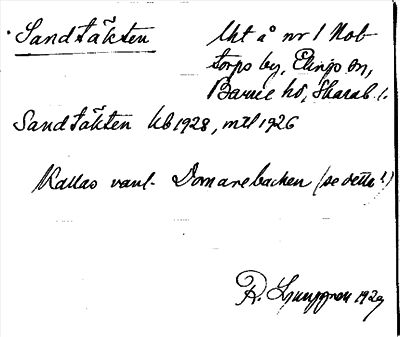 Sandtäkten
Uht å nr 1 Nob-
torps by, Elings sn,
Barne hd, Skarab. l.
Sandtäkten kb 1928, mtl 1926
Kallas vanl. Domarebacken (se detta!)
R. Ljunggren 1929